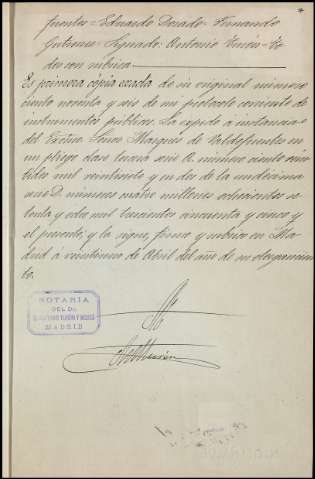 fuentes = Eduardo Dorado = Fernando
Gutierrez = Signado: Antonio Turón = Ro-
dos con rubrica
Es primera copia exacta de su original número
ciento noventa y seis de mi protocolo corriente de
instrumentos públicos. La expido á instancia
del Excmo. Señor Marqués de Valdefuentes en
un pliego clase tercera serie A. número ciento
mil veintisiete y en dos de la undécima
serie D. números cuatro millones ochocientos se-
tenta y ocho mil trescientos cincuenta y cinco y
el presente; y la signo, firmo y rubrico en Ma-
drid á veintinueve de Abril del año de su otorgamien-
to.
NOTARIA
DEL Dr.
MADRID